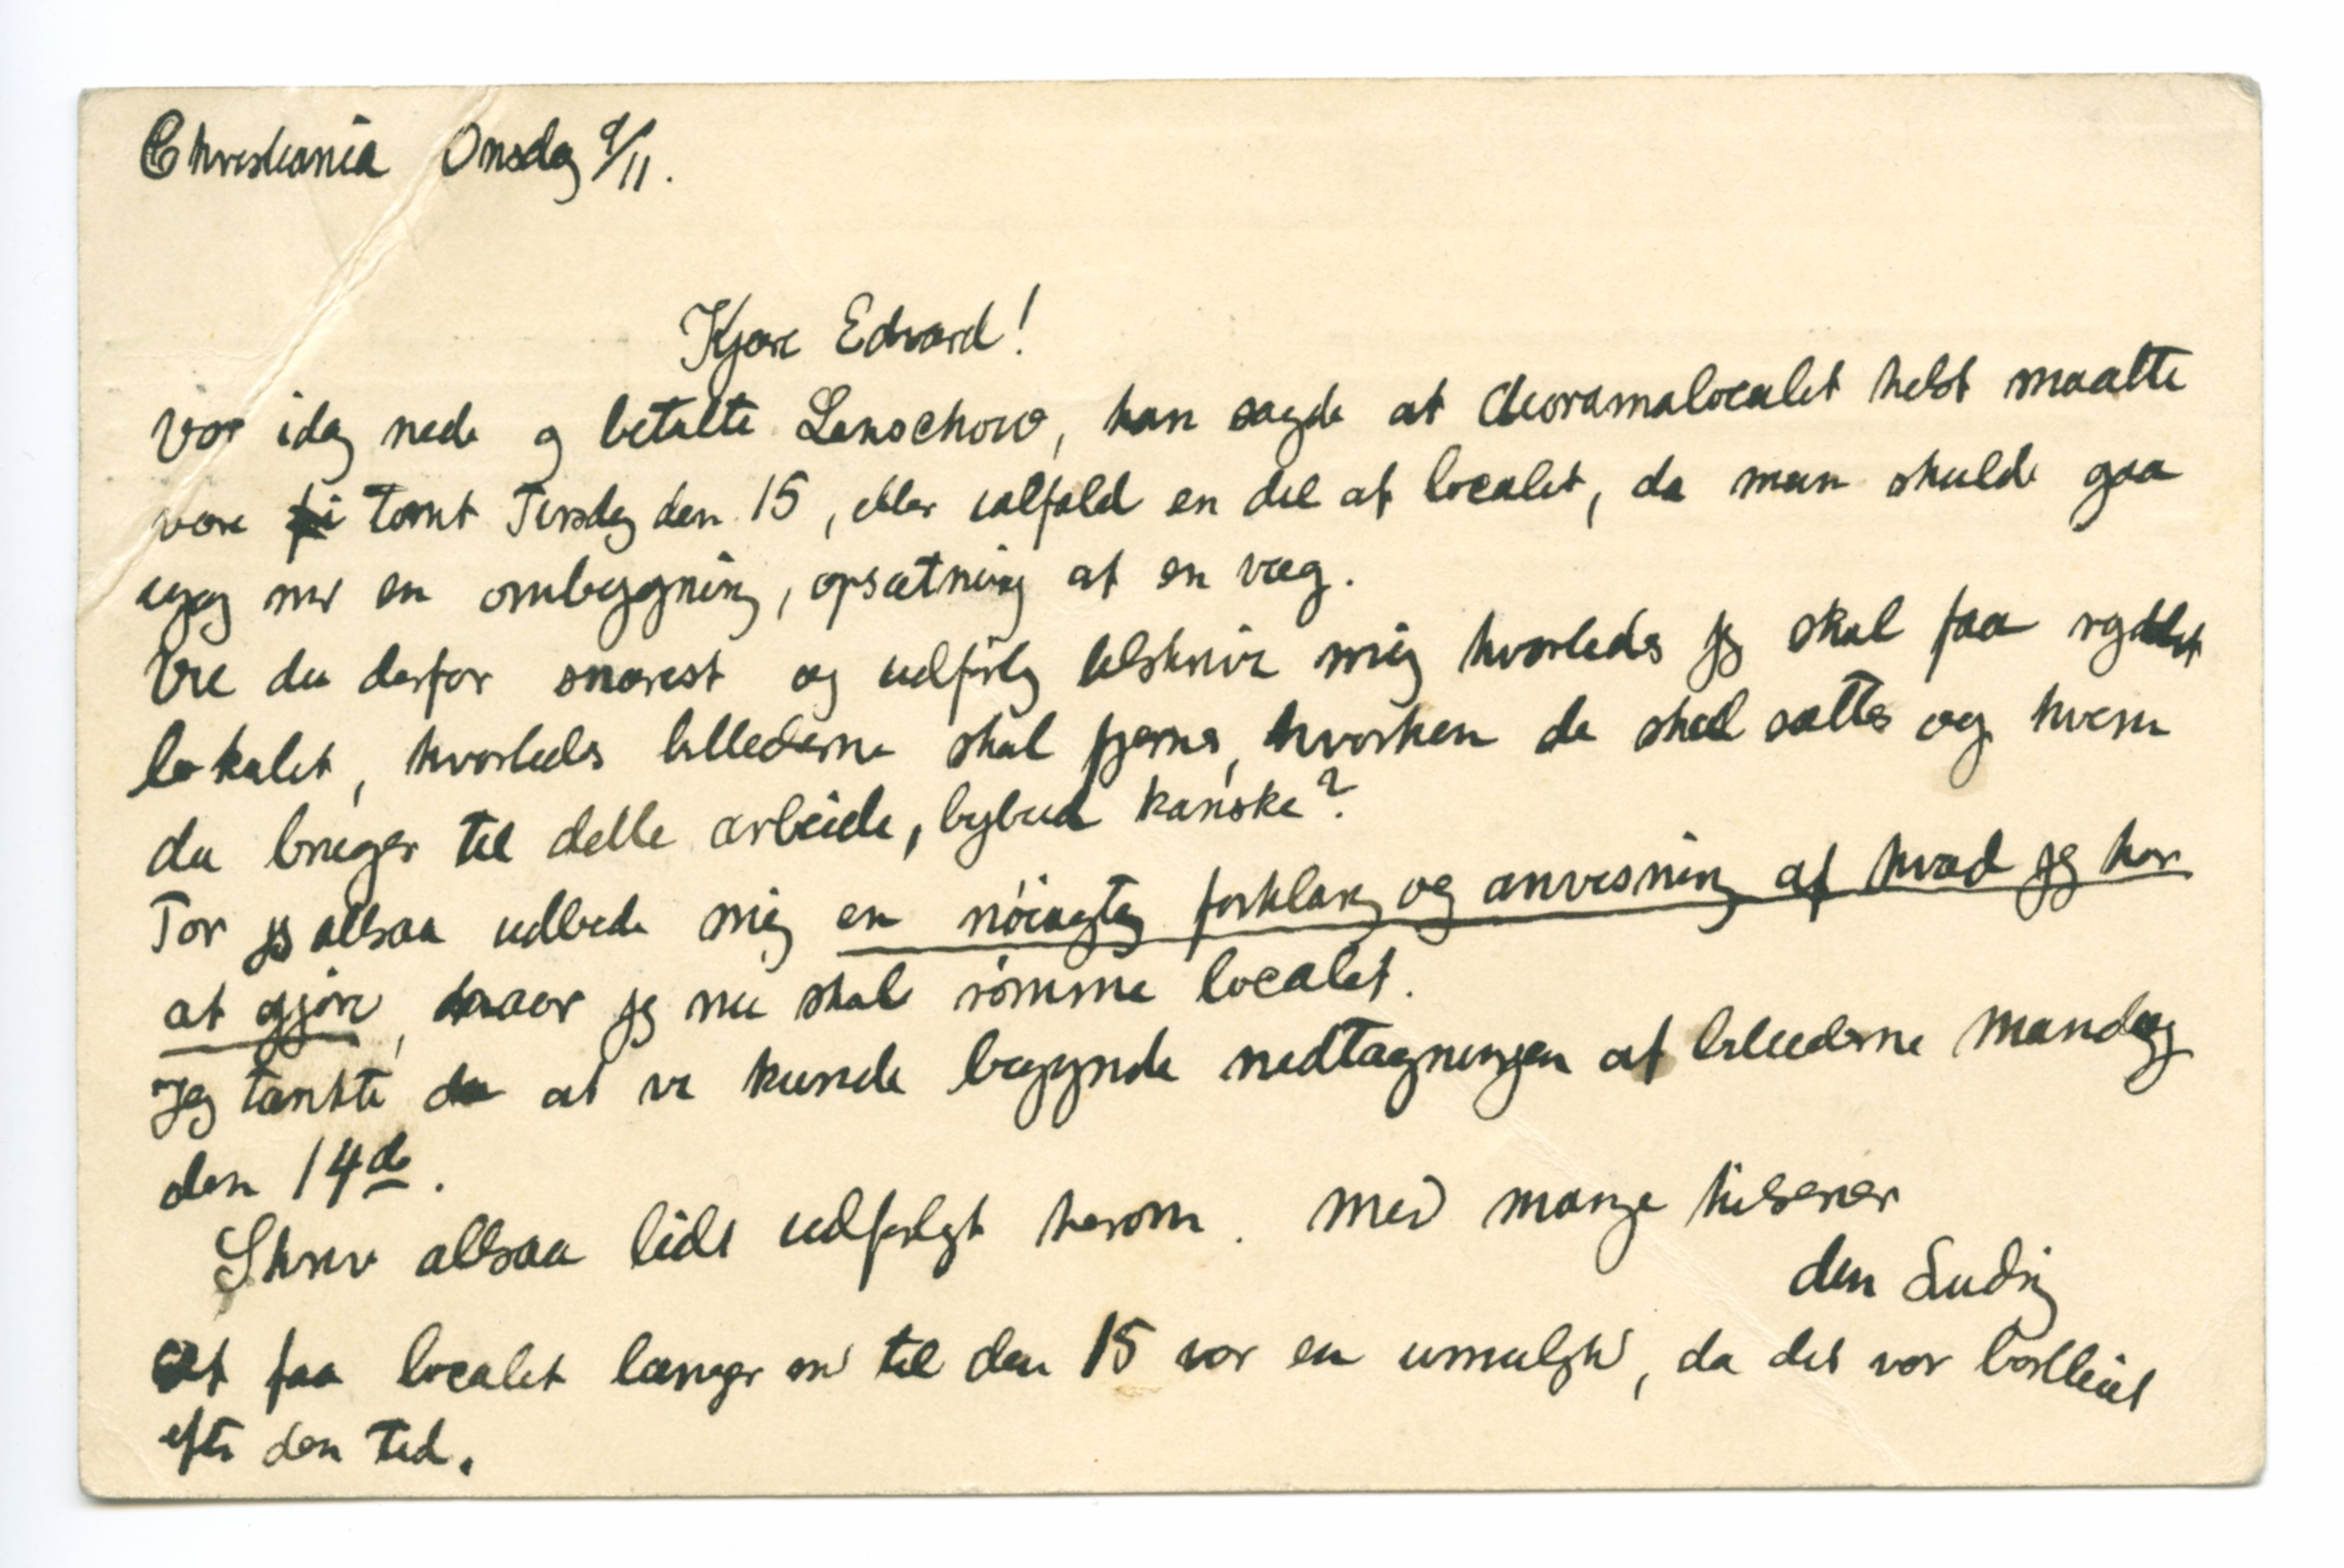 Christiania Onsdag 9/11.
Kjære Edvard!
Var idag nede og betalte Lanschow, han sagde at dioramalocalet helst maatte
være tomt Tirsdag den 15, eller ialfald en del af localet, da man skulde gaa
igag med en ombygning, opsætning af en væg.
Vil du derfor snarest og udførlig tilskrive mig hvorledes jeg skal faa ryddet
lokalet, hvorledes billederne skal fjernes, hvorhen de skal sættes og hvem
du bruger til dette arbeide, bybud kanske?
Tør jeg altsaa udbede mig en nöiagtig forklaring og anvisning af hvad jeg har
at gjöre, naar jeg nu skal römme localet.
Jeg tænkte at vi kunde begynde nedtagningen af billederne Mandag
den 14de.
Skriv altsaa lidt udførligt herom. Med mange hilsener
din Ludvig
At faa localet længer end til den 15 var en umulighed, da det var bortleiet
efter den tid.